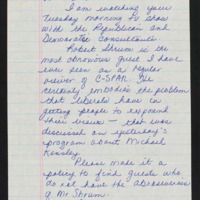 I am watching your
Tuesday morning TV show
with the Republican and
Democratic Consultants.
Robert Shrum is the
most obnoxious guest I have
ever seen as a regular
viewer of C-SPAN. He
certainly embodies the problem
that liberals have in
getting people to expound
their views — that was
discussed on yesterday's
program about Michael
Kinsley.
Please make it a
policy to find guests who
do not have the abrasiveness
of Mr. Shrum.